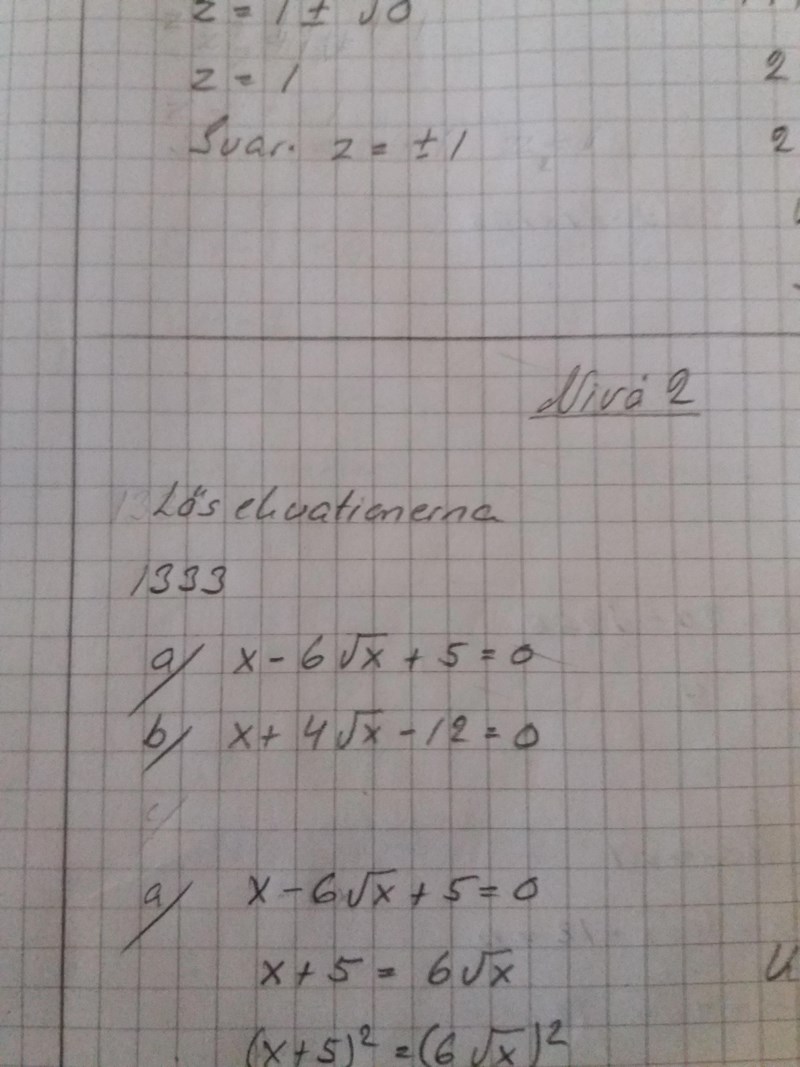 z = 1 ± √0
z = 1
2
Svar. z = ±1
2
Nivå 2
Lös ekvationerna
1333
a) x - 6√x + 5 = 0
b) x + 4√x - 12 = 0
c)
a) x - 6√x + 5 = 0
x + 5 = 6√x
(x+5)² = (6√x)²